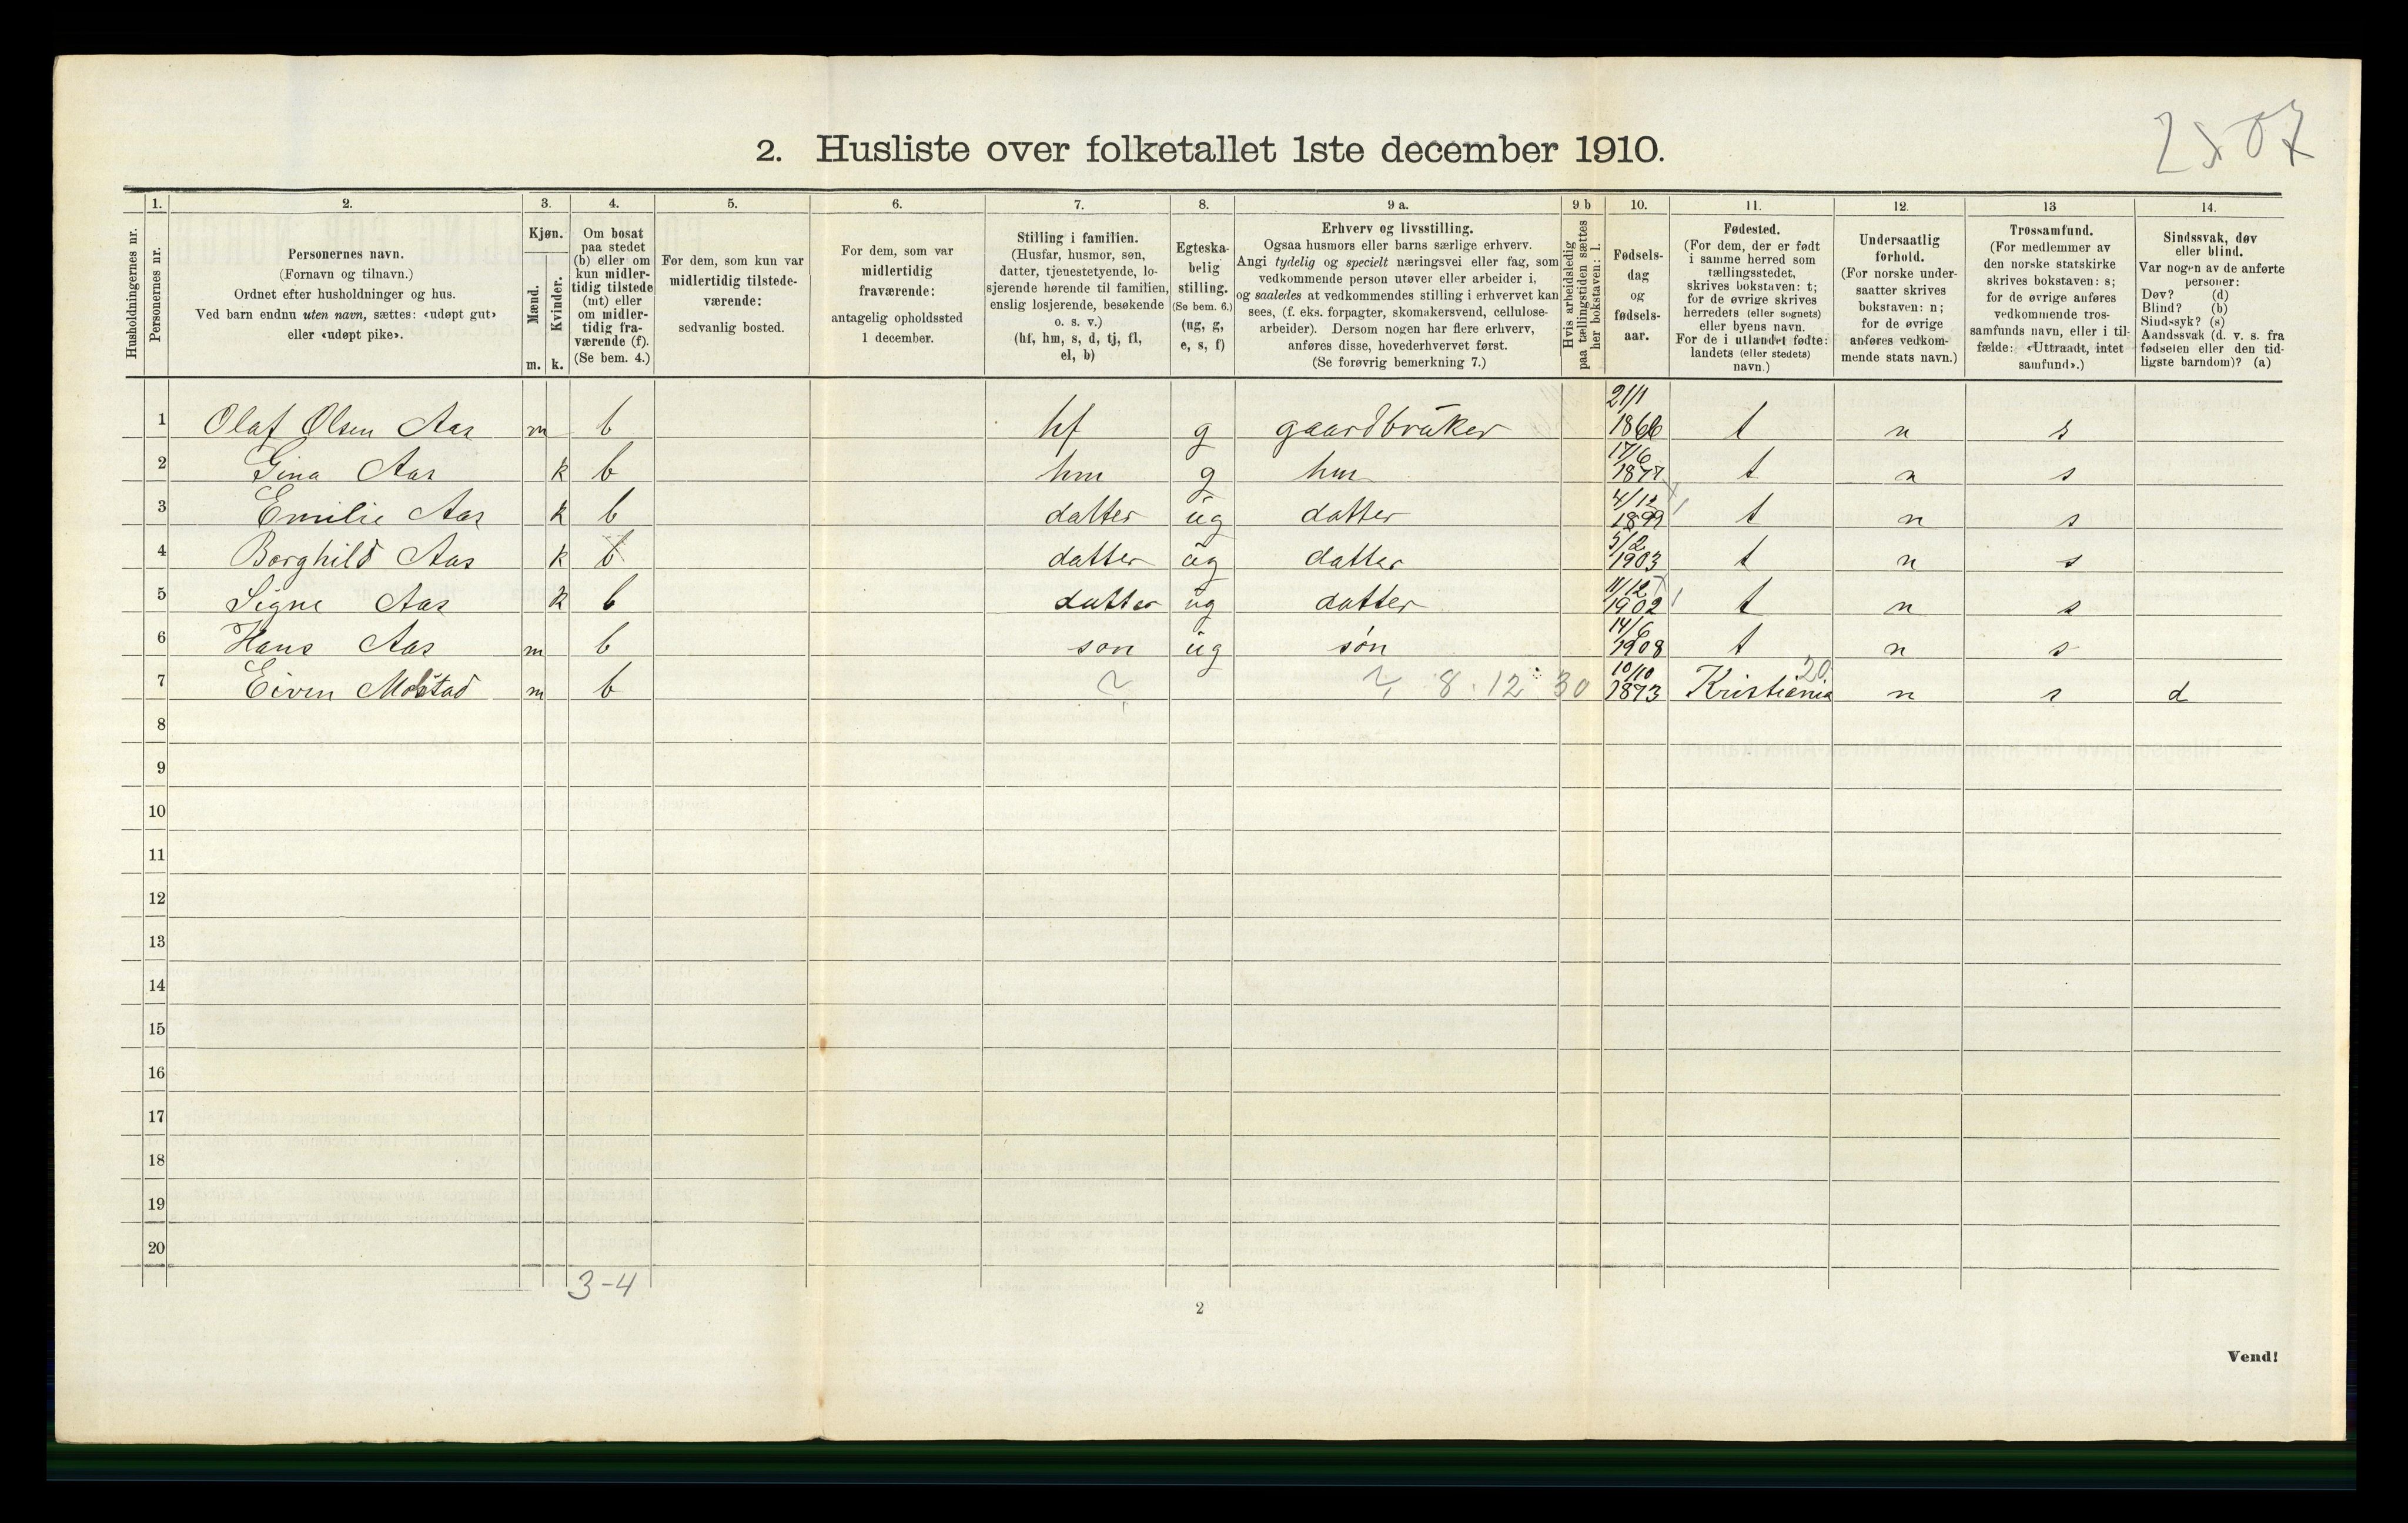 2. Husliste over folketallet 1ste december 1910.
Husholdningernes nr.
1.
Personernes nr.
2.
Personernes navn.
(Fornavn og tilnavn.)
Ordnet efter husholdninger og hus.
Ved barn endnu uten navn, sættes: «udøpt gut»
eller «udøpt pike».
3.
Kjøn.
Mænd.
Kvinder.
m. k.
4.
Om bosat
paa stedet
(b) eller om
kun midler-
tidig tilstede
(mt) eller
om midler-
tidig fra-
værende (f).
(Se bem. 4.)
5.
For dem, som kun var
midlertidig tilstede-
værende:
sedvanlig bosted.
6.
For dem, som var
midlertidig
fraværende:
antagelig opholdssted
1 december.
7.
Stilling i familien.
(Husfar, husmor, søn,
datter, tjenestetyende, lo-
sjerende hørende til familien,
enslig losjerende, besøkende
o. s. v.)
(hf, hm, s, d, tj, fl,
el, b)
8.
Egteska-
belig
stilling.
(Se bem. 6.)
(ug, g,
e, s, f)
9 a.
Erhverv og livsstilling.
Ogsaa husmors eller barns særlige erhverv.
Angi tydelig og specielt næringsvei eller fag, som
vedkommende person utøver eller arbeider i,
og saaledes at vedkommendes stilling i erhvervet kan
sees, (f. eks. forpagter, skomakersvend, cellulose-
arbeider). Dersom nogen har flere erhverv,
anføres disse, hovederhvervet først.
(Se forøvrig bemerkning 7.)
9 b
Hvis arbeidsledig
paa tællingstiden sættes
her bokstaven: l.
10.
Fødsels-
dag
og
fødsels-
aar.
11.
Fødested.
(For dem, der er født
i samme herred som
tællingsstedet,
skrives bokstaven: t;
for de øvrige skrives
herredets (eller sognets)
eller byens navn.
For de i utlandet fødte:
landets (eller stedets)
navn.)
12.
Undersaatlig
forhold.
(For norske under-
saatter skrives
bokstaven: n;
for de øvrige
anføres vedkom-
mende stats navn.)
13
Trossamfund.
(For medlemmer av
den norske statskirke
skrives bokstaven: s;
for de øvrige anføres
vedkommende tros-
samfunds navn, eller i til-
fælde: «Uttraadt, intet
samfund».)
14.
Sindssvak, døv
eller blind.
Var nogen av de anførte
personer:
Døv? (d)
Blind? (b)
Sindssyk? (s)
Aandssvak (d. v. s. fra
fødselen eller den tid-
ligste barndom)? (a)
1 Olaf Olsen Aas m b hf g gaardbruker 21/1 1866 t n s
2 Gina Aas k b hm g hm 17/6 1877 t n s
3 Emilie Aas k b datter ug datter 4/12 1899 t n s
4 Borghild Aas k b datter ug datter 5/2 1903 t n s
5 Signe Aas k b datter ug datter 11/12 1902 t n s
6 Hans Aas m b søn ug søn 14/6 1908 t n s
7 Eiven Mostad m b ? ? 8.12 30 10/10 1873 Kristiania 20 n s d
8
9
10
11
12
13
14
15
16
17
18
19
20
3-4
2
Vend!